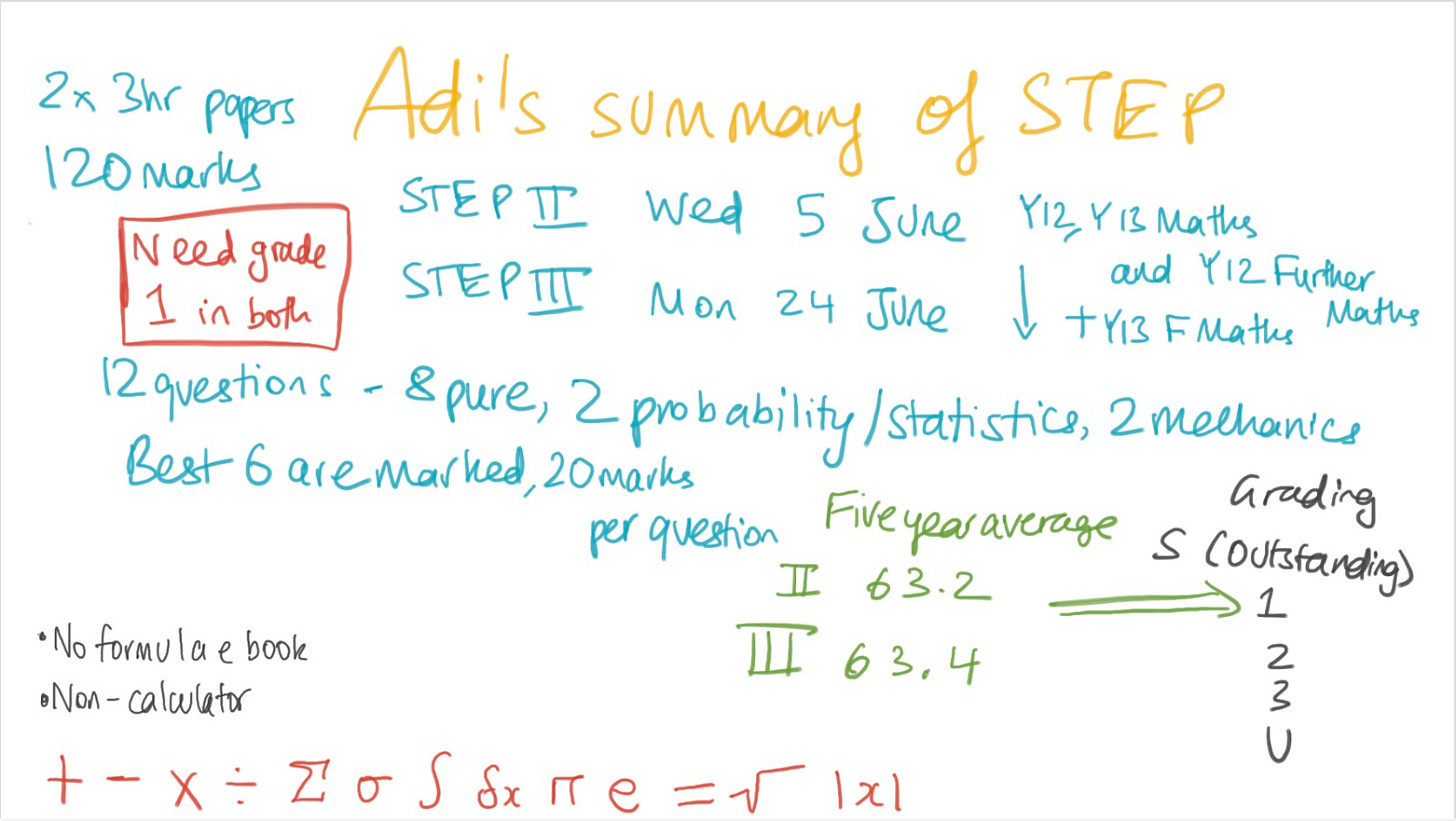 Adi's summary of STEP
2x 3hr papers
120 marks
Need grade
1 in both
STEP II Wed 5 June
STEP III Mon 24 June
Y12, Y13 Maths
and Y12 Further
Maths
↓ +Y13 F Maths
12 questions - 8 pure, 2 probability/statistics, 2 mechanics
Best 6 are marked, 20 marks
per question
Five year average
II 63.2
III 63.4
Grading
S (Outstanding)
1
2
3
U
•No formulae book
•Non-calculator
+ - x ÷ Σ σ ∫ δx π e = √ |x|